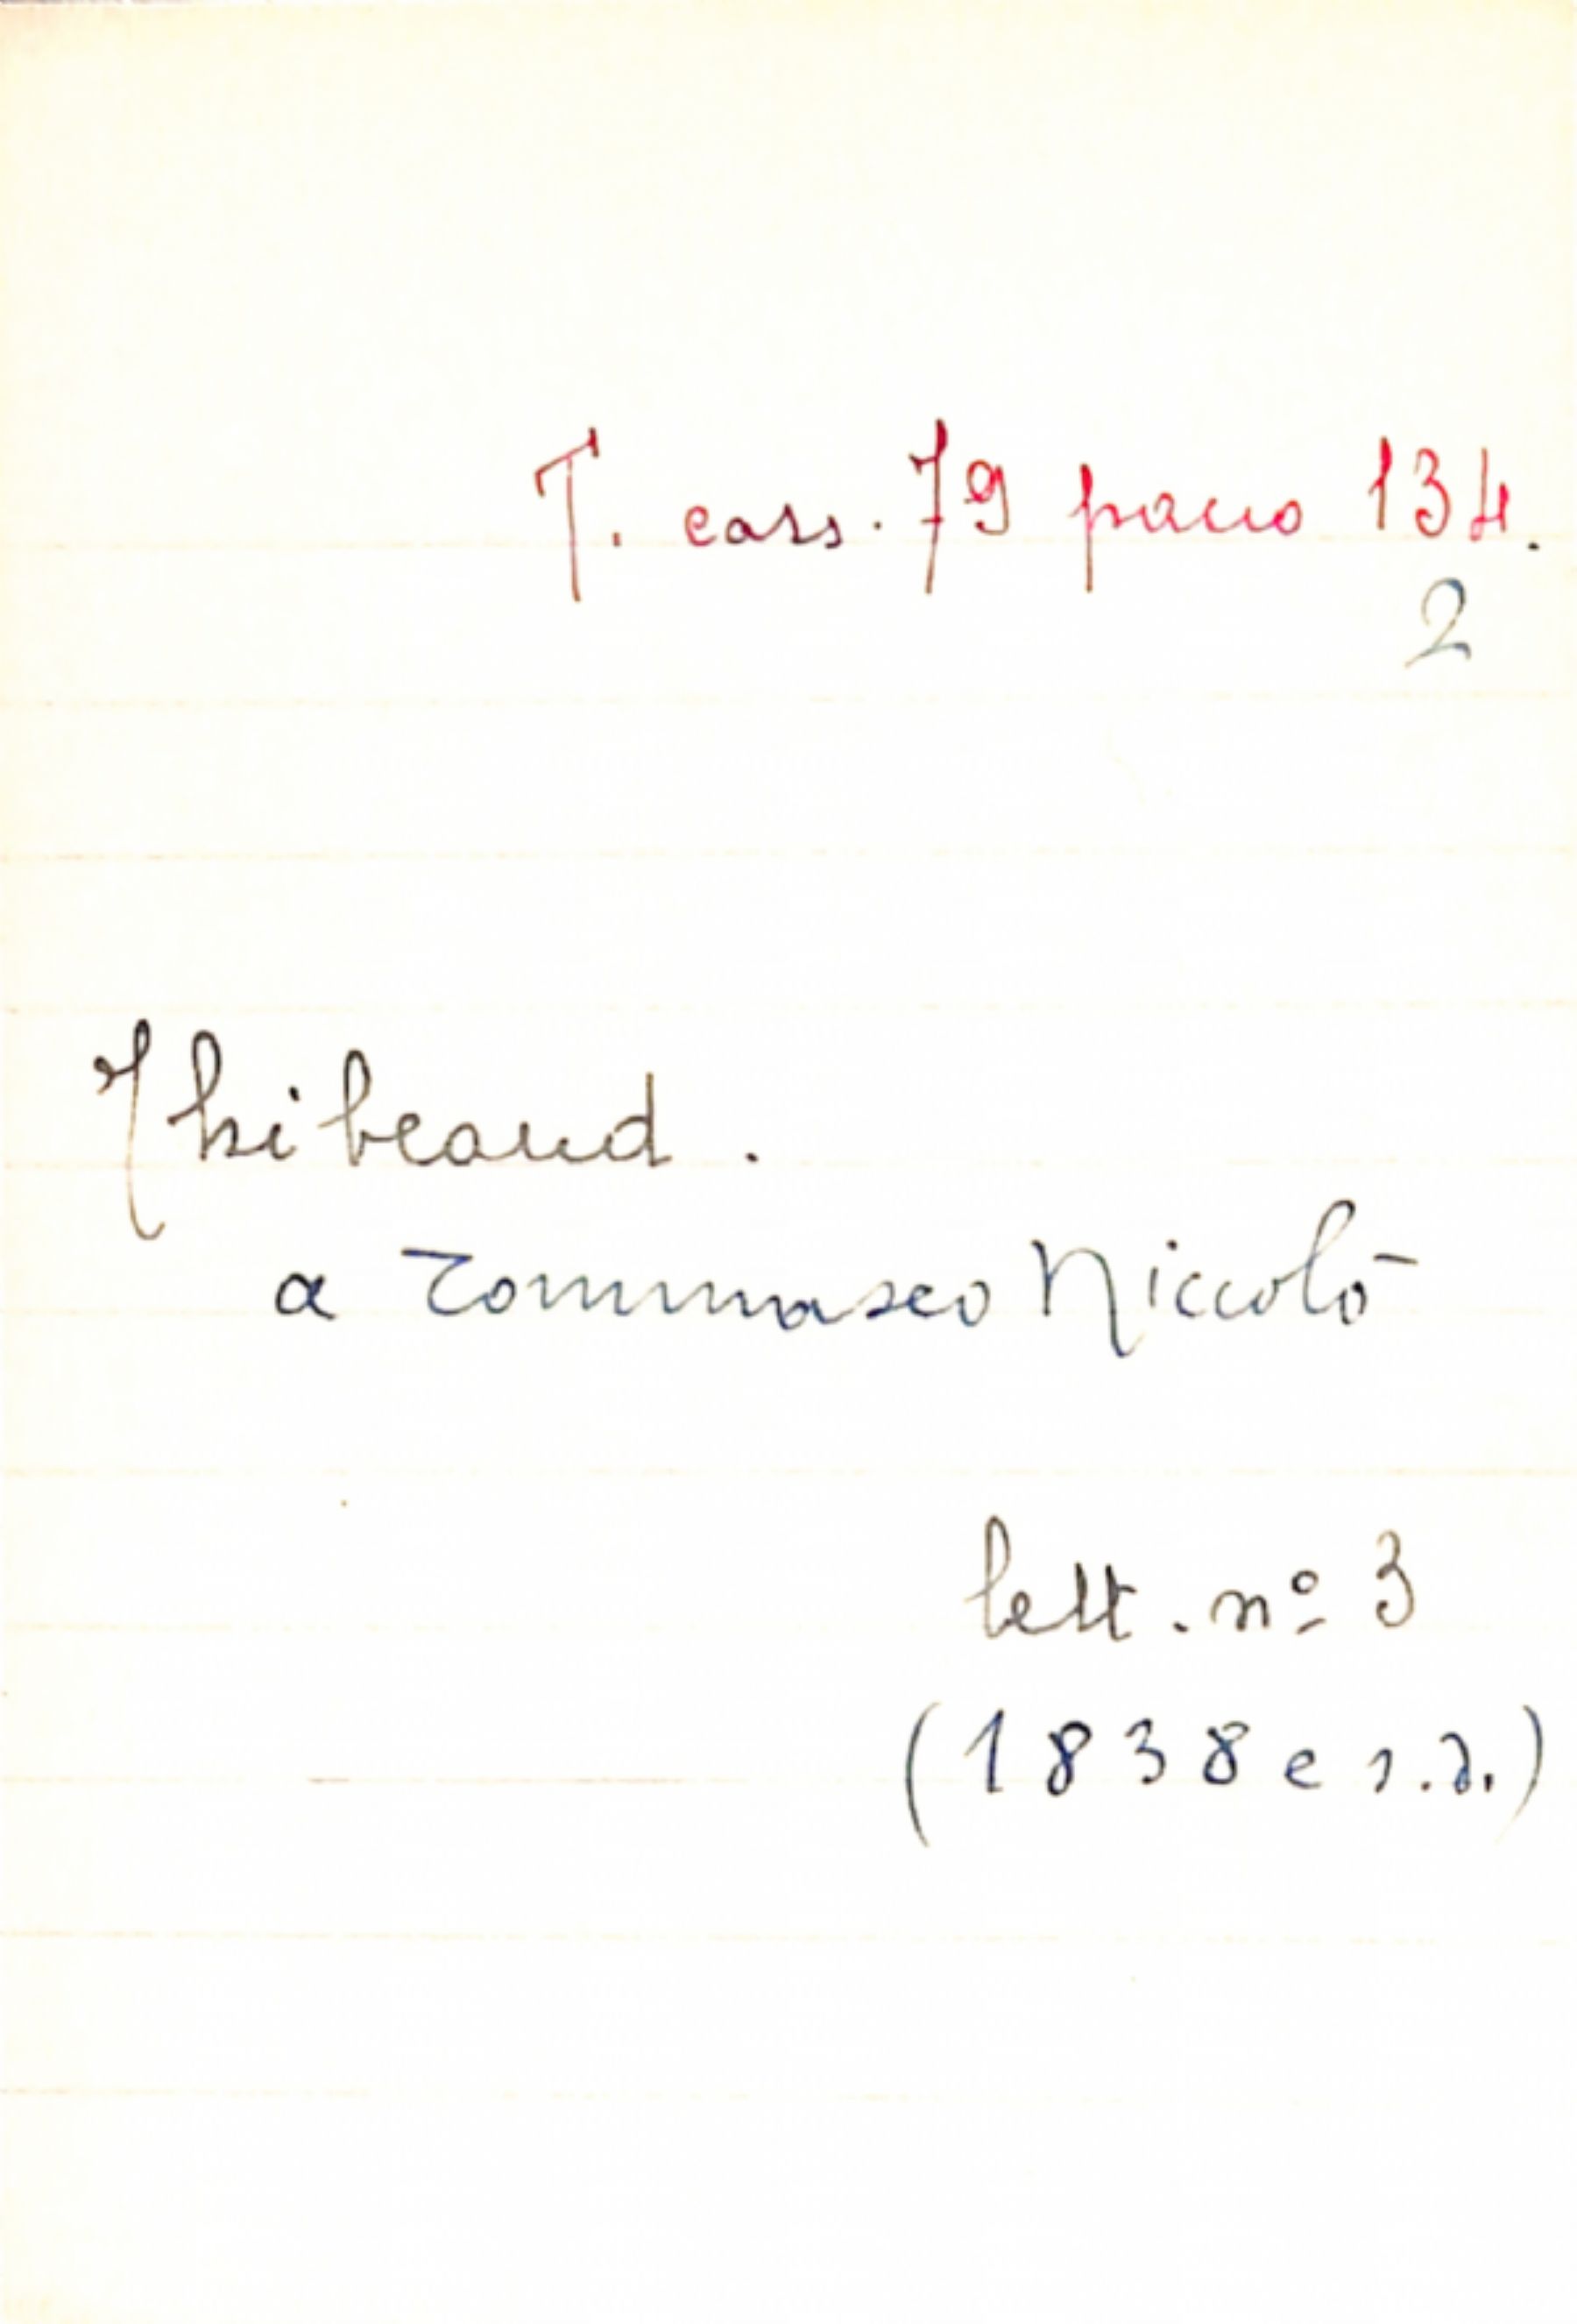 T. cass. 79 pacco 134.
2
Thibeaud.
a Tommaseo Niccolò
lett. nº 3
(1838 e s.d.)